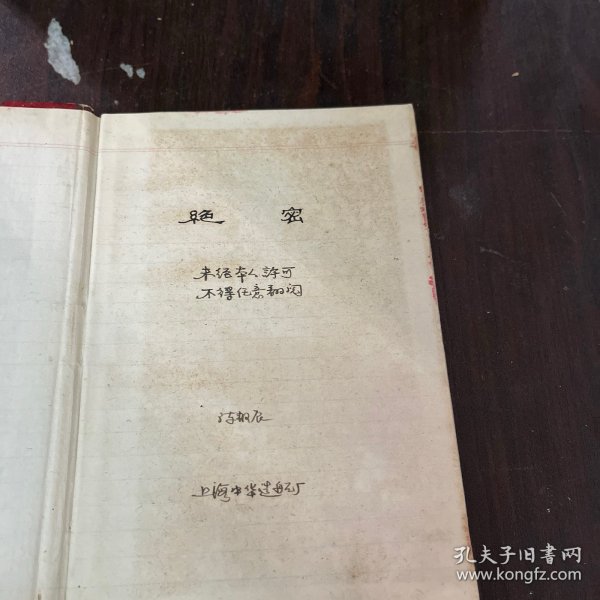 絕 密
未经本人許可
不得任意翻阅
上海中华造船厂
孔夫子旧书网
www.kongfz.com